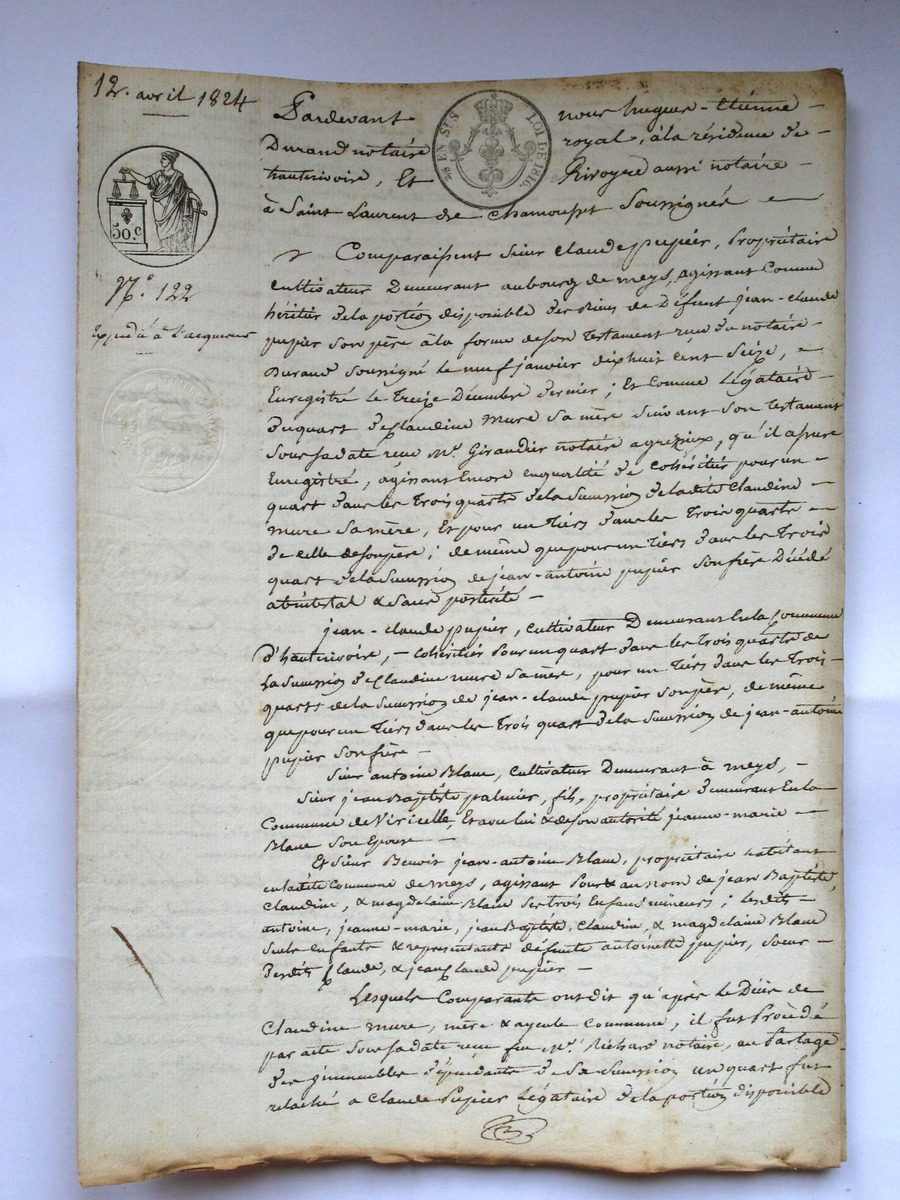 12. avril 1824
50.c
N.° 122
Expédié à l'acquéreur
EN SUS
LOI DE 1816.
Pardevant nous hugues-Etienne
Durand notaire royal, à la résidence de
hauterivoire, Et Rivoyre aussi notaire
à Saint Laurent de Chamousset Soussignés
Comparaissent Sieur Claude pupier, Propriétaire
Cultivateur Demeurant au bourg de meys, agissant Comme
héritier de la portion disponible des Biens de Défunt jean-claude
pupier son père à la forme de son Testament reçu du notaire
Durand soussigné le neuf janvier dix huit cent Seize,
Enregistré le Treize Décembre dernier; Et Comme Légataire
du quart de Claudine mure Sa mère Suivant Son Testament
Sous sa date reçu M.e Giraudier notaire a grezieux, qu'il assure
Enregistré, agissant Encore en qualité de Cohéritier pour un
quart dans les Trois quarts de la Succession de ladite Claudine
mure Sa mère, Et pour un Tiers dans les Trois quarts
de celle de son père; de même que pour un Tiers dans les Trois
quart de la Succession de jean-antoine pupier Son frère Décédé
abintestat & Sans postérité
jean-claude pupier, cultivateur Demeurant En la Commune
d'hauterivoire, cohéritier Pour un quart dans les Trois quarts de
La Succession de Claudine mure Sa mère, pour un Tiers dans les Trois
quarts de la Succession de jean-claude pupier Son père, de même
que pour un Tiers dans les Trois quart de la Succession de jean-antoine
pupier Son frère
Sieur antoine Blanc, Cultivateur Demeurant à meys,
Sieur jean Baptiste palmier, fils, propriétaire Demeurant En la
Commune de Viricelle, Et avec lui & de son autorité jeanne-marie
Blanc Son Epouse
Et Sieur Benoit jean-antoine Blanc, propriétaire habitant
en ladite Commune de meys, agissant Pour & au nom de jean Baptiste,
Claudine, & magdelaine Blanc Ses trois Enfans mineurs; lesdits
antoine, jeanne-marie, jean Baptiste, Claudine, & magdelaine Blanc
Seuls enfants & représentants défunte antoinette pupier, sœur
desdits Claude, & jean Claude pupier
Lesquels Comparants ont dit qu'après le Décès de
Claudine mure, mère & ayeule Commune, il fut Procédé
par acte Sous sa date reçu feu M.e Richard notaire, au Partage
des immeubles dépendants de Sa Succession un quart fut
relaché a Claude Pupier Légataire de la portion disponible